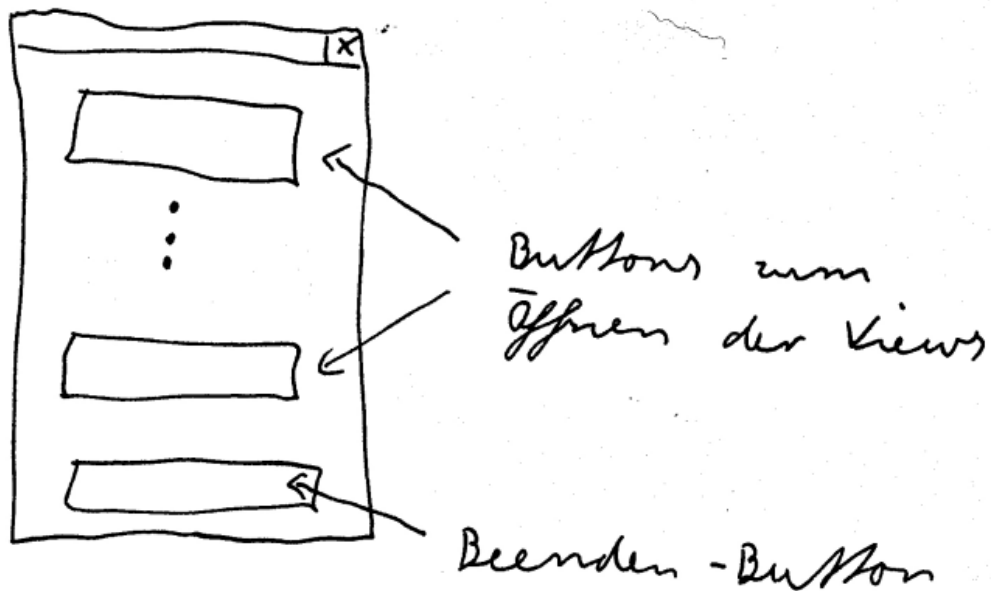 X
Buttons zum
Öffnen der Views
Beenden-Button